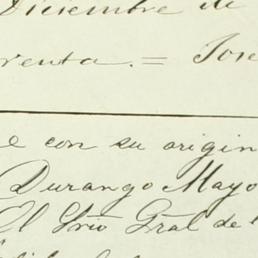 Diciembre de
renta. = Jose
e con su origin
Durango Mayo
El Srio Gral de l